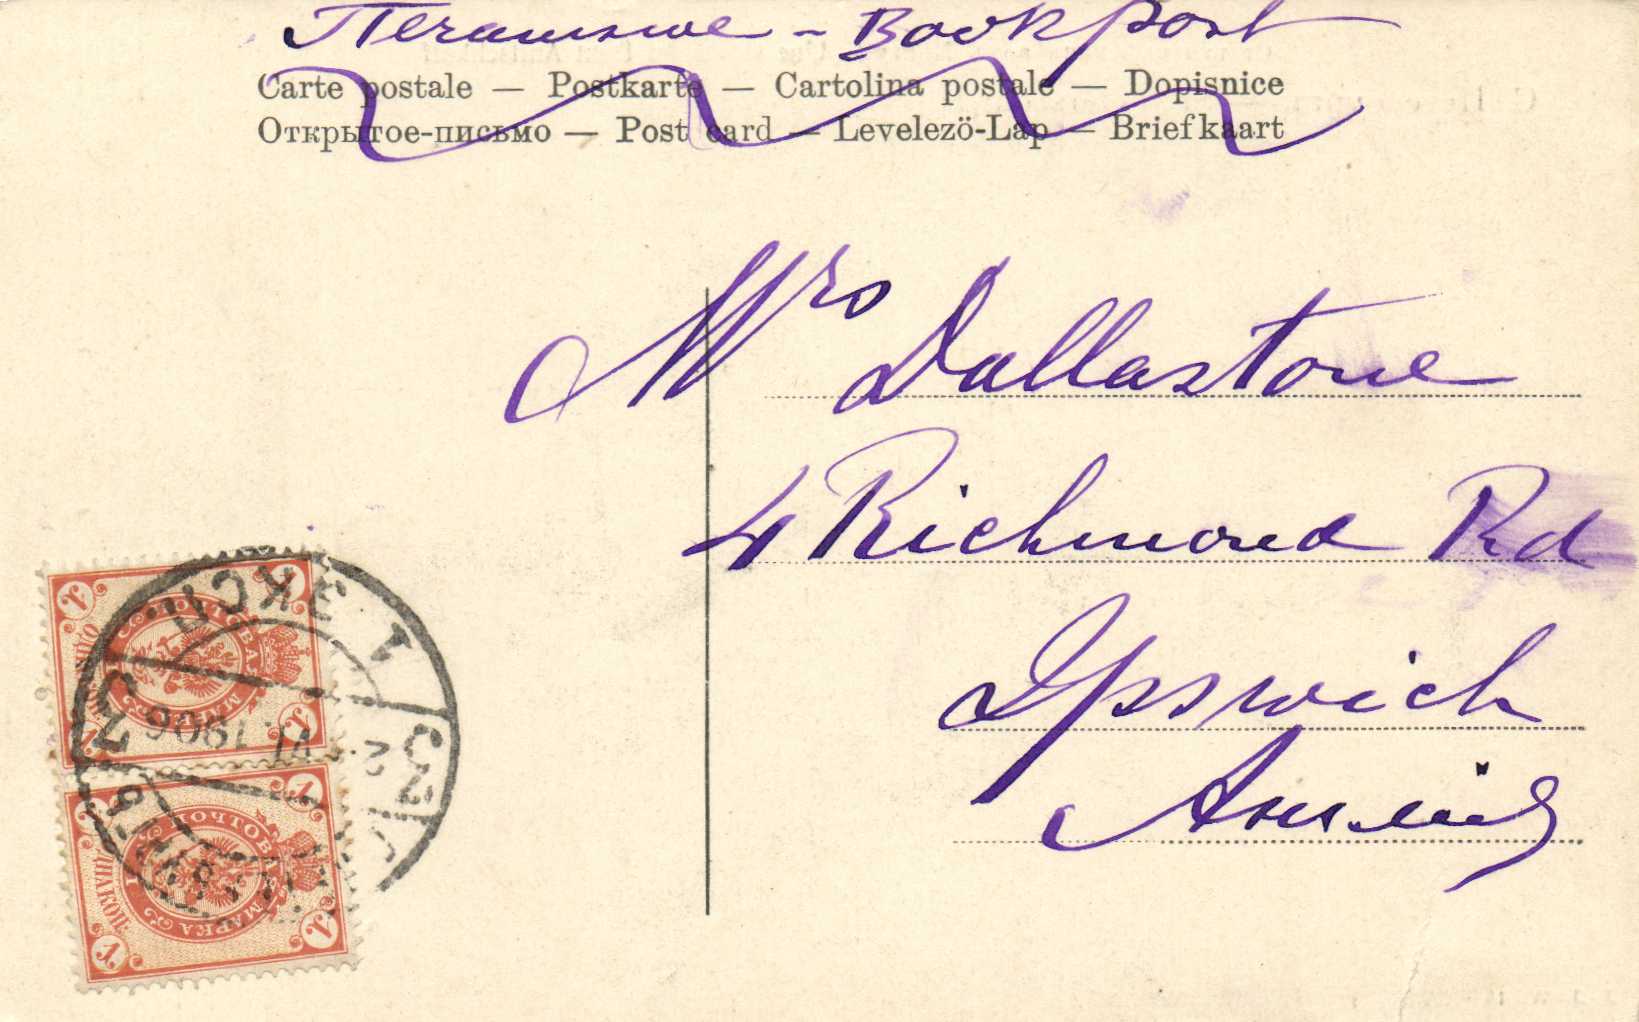 Печатное – Bookpost
Carte postale — Postkarte — Cartolina postale — Dopisnice
Открытое-письмо — Post card — Levelezö-Lap — Briefkaart
Mrs Dallastone
4 Richmond Rd
Ipswich
Англія
1 ЭКСП.
VI. 1906
ПОЧТОВАЯ МАРКА
1
ПОЧТОВАЯ МАРКА
1
КОП.